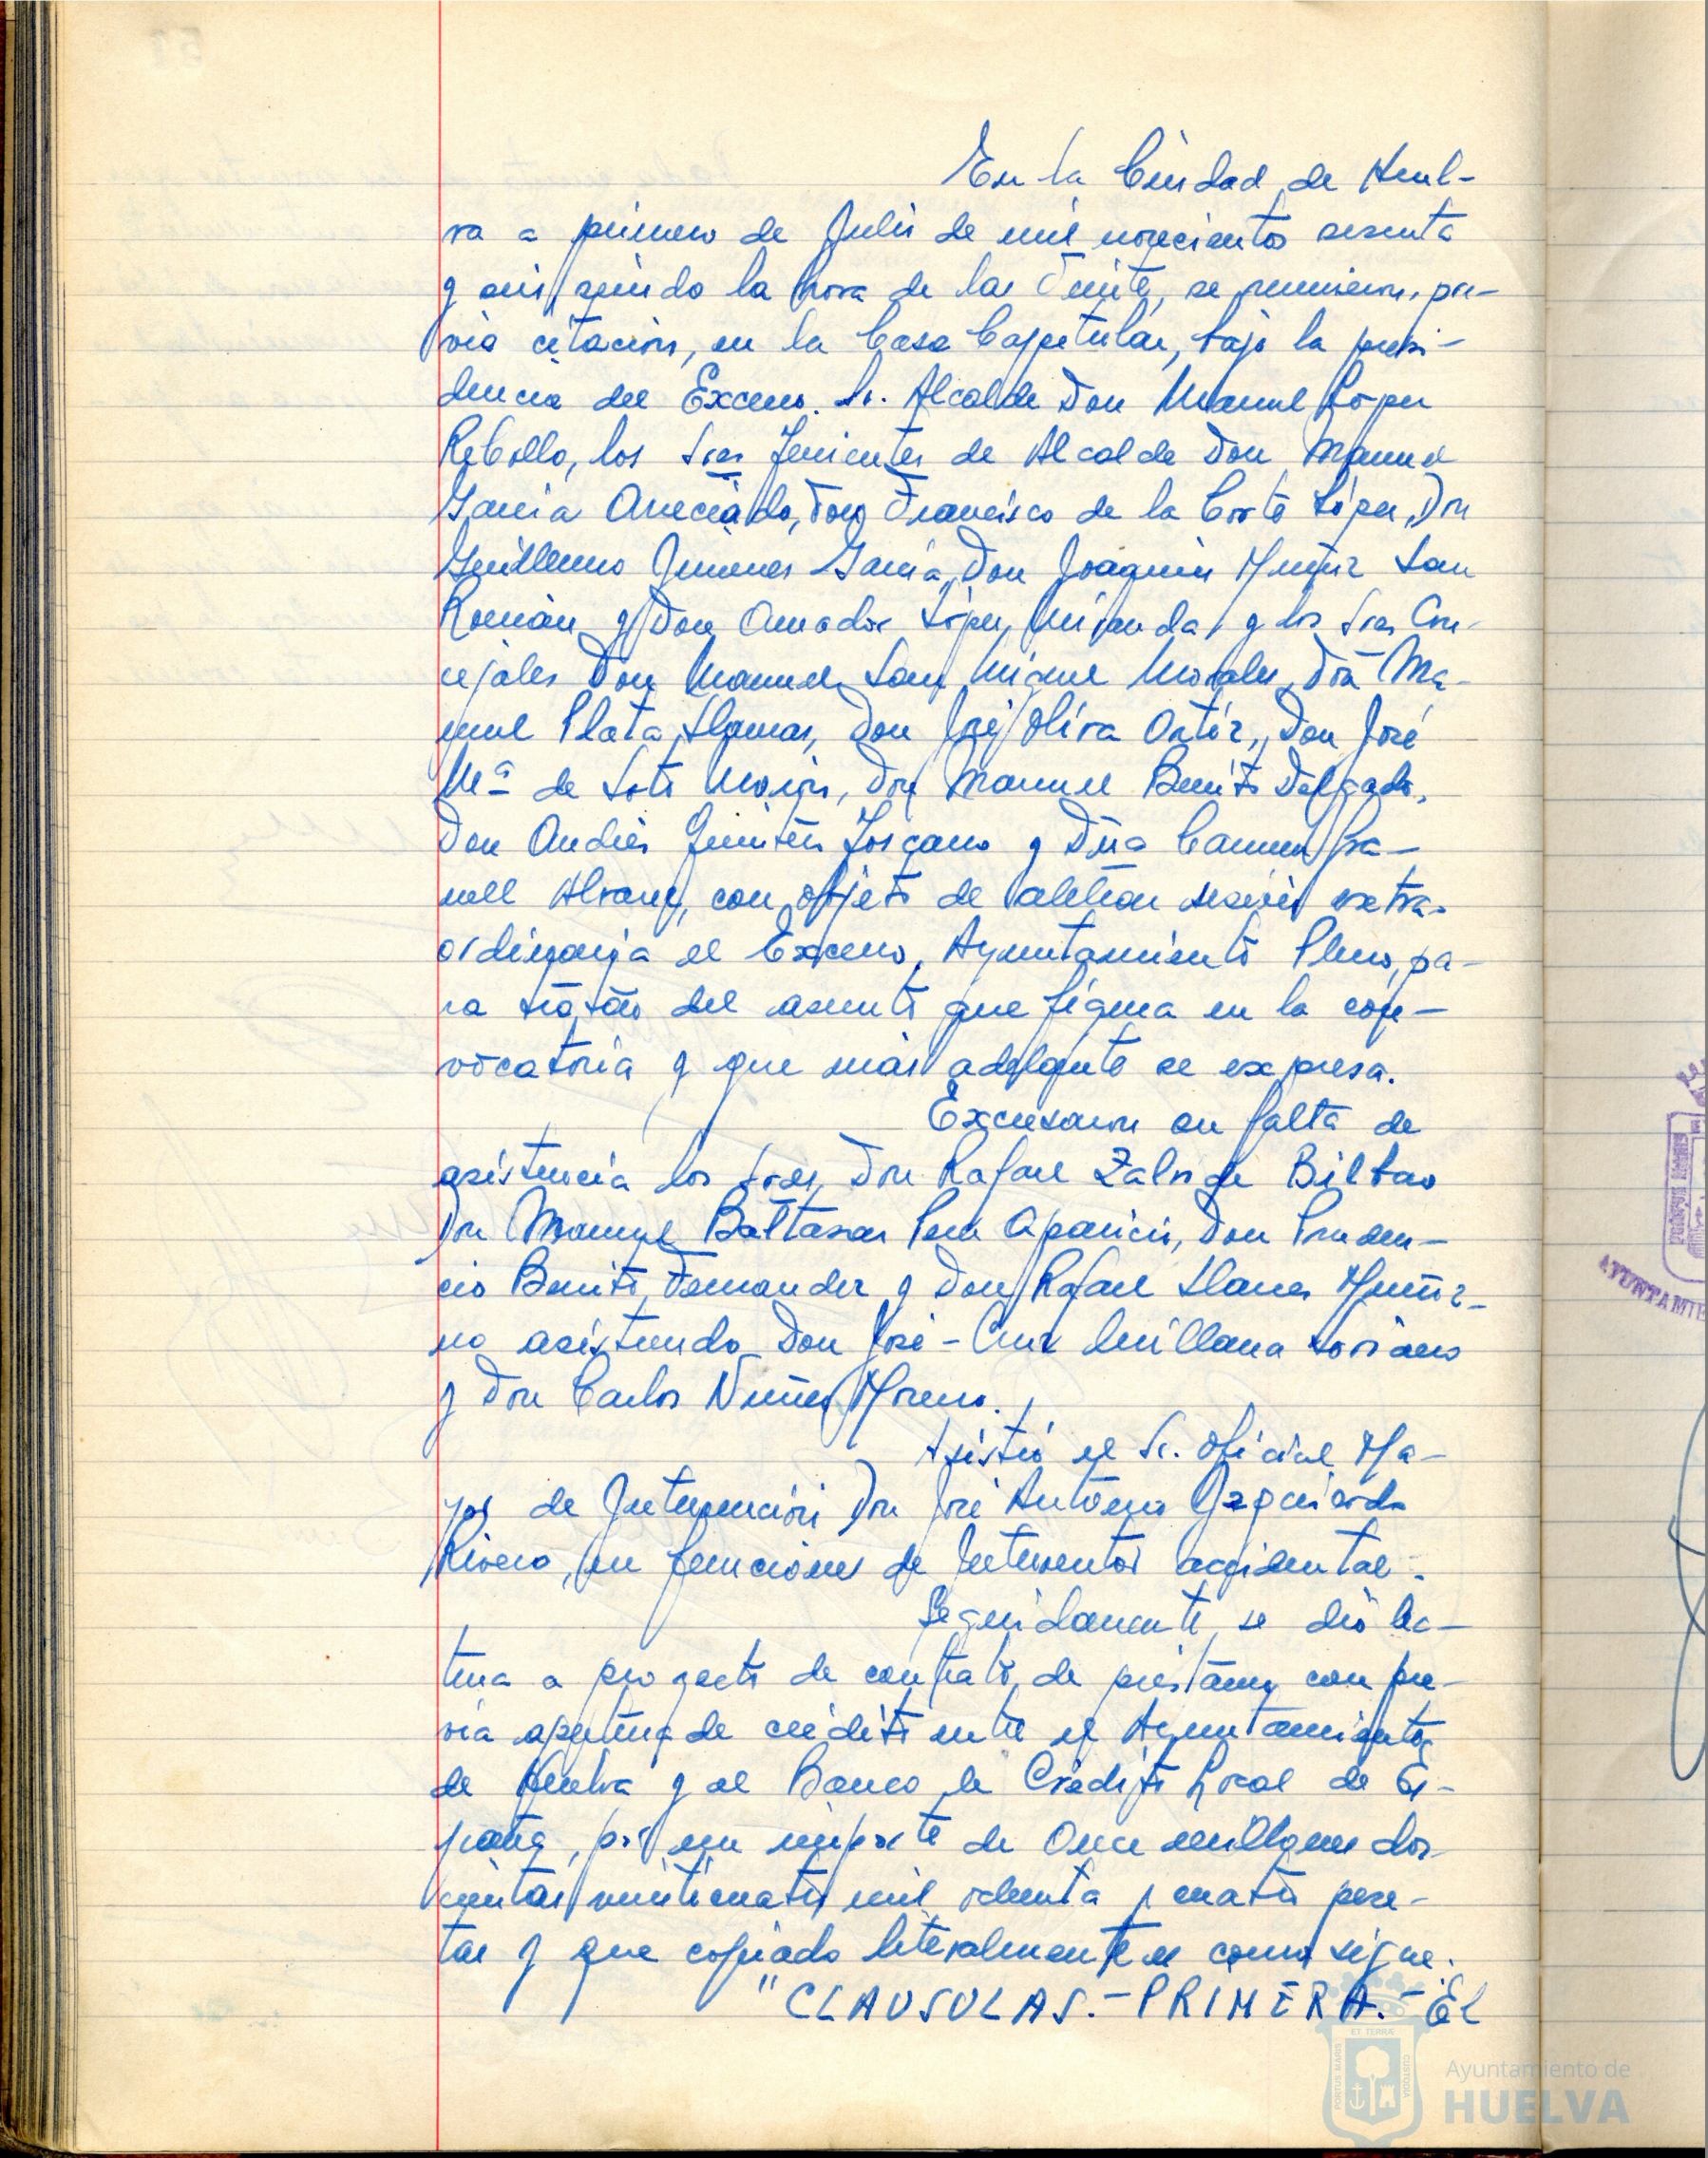 En la Ciudad de Huel-
va a primero de Julio de mil novecientos sesenta
y seis, siendo la hora de las veinte, se reunieron, pre-
via citación, en la Casa Capitular, bajo la presi-
dencia del Excmo. Sr. Alcalde Don Manuel López
Rebollo, los Sres Tenientes de Alcalde Don Manuel
García Don Francisco de la Corte López, Don
Guillermo Jimenez García, Don Joaquin Muñiz San
Román y Don Amador López Miranda, y los Sres Con-
cejales Don Manuel San Miguel Morales, Don Ma-
nuel Plata Llamas, Don José Oliva Ortíz, Don José
Mª de Soto Morón, Don Manuel Benito Delgado,
Don Andrés Quintero Toscano y Dña Carmen Gra-
nell Alvarez, con objeto de celebrar sesión extra-
ordinaria el Excmo. Ayuntamiento Pleno, pa-
ra tratar del asunto que figura en la con-
vocatoria y que más adelante se expresa.
Excusaron su falta de
asistencia los Sres. Don Rafael Zalvide Bilbao
Don Manuel Baltasar Pera Aparicio, Don Pruden-
cio Benito Fernandez y Don Rafael Llanes Muñiz-
no asistiendo Don José-Cruz Soriano
y Don Carlos Nuñez Moreno.
Asistió el Sr. Oficial Ma-
yor de Intervención Don José Antonio Izquierdo
Rivero, en funciones de Interventor accidental.
Seguidamente, se dió lec-
tura a proyecto de contrato de préstamo con pre-
via apertura de crédito entre el Ayuntamiento
de Huelva y el Banco de Crédito Local de Es-
paña, por un importe de Once millones dos-
cientas veinticuatro mil ochenta y cuatro pese-
tas y que copiado literalmente es como sigue:
"CLAUSULAS.- PRIMERA.- El
PORTUS MARIS
ET TERRÆ
CUSTODIA
Ayuntamiento de
HUELVA